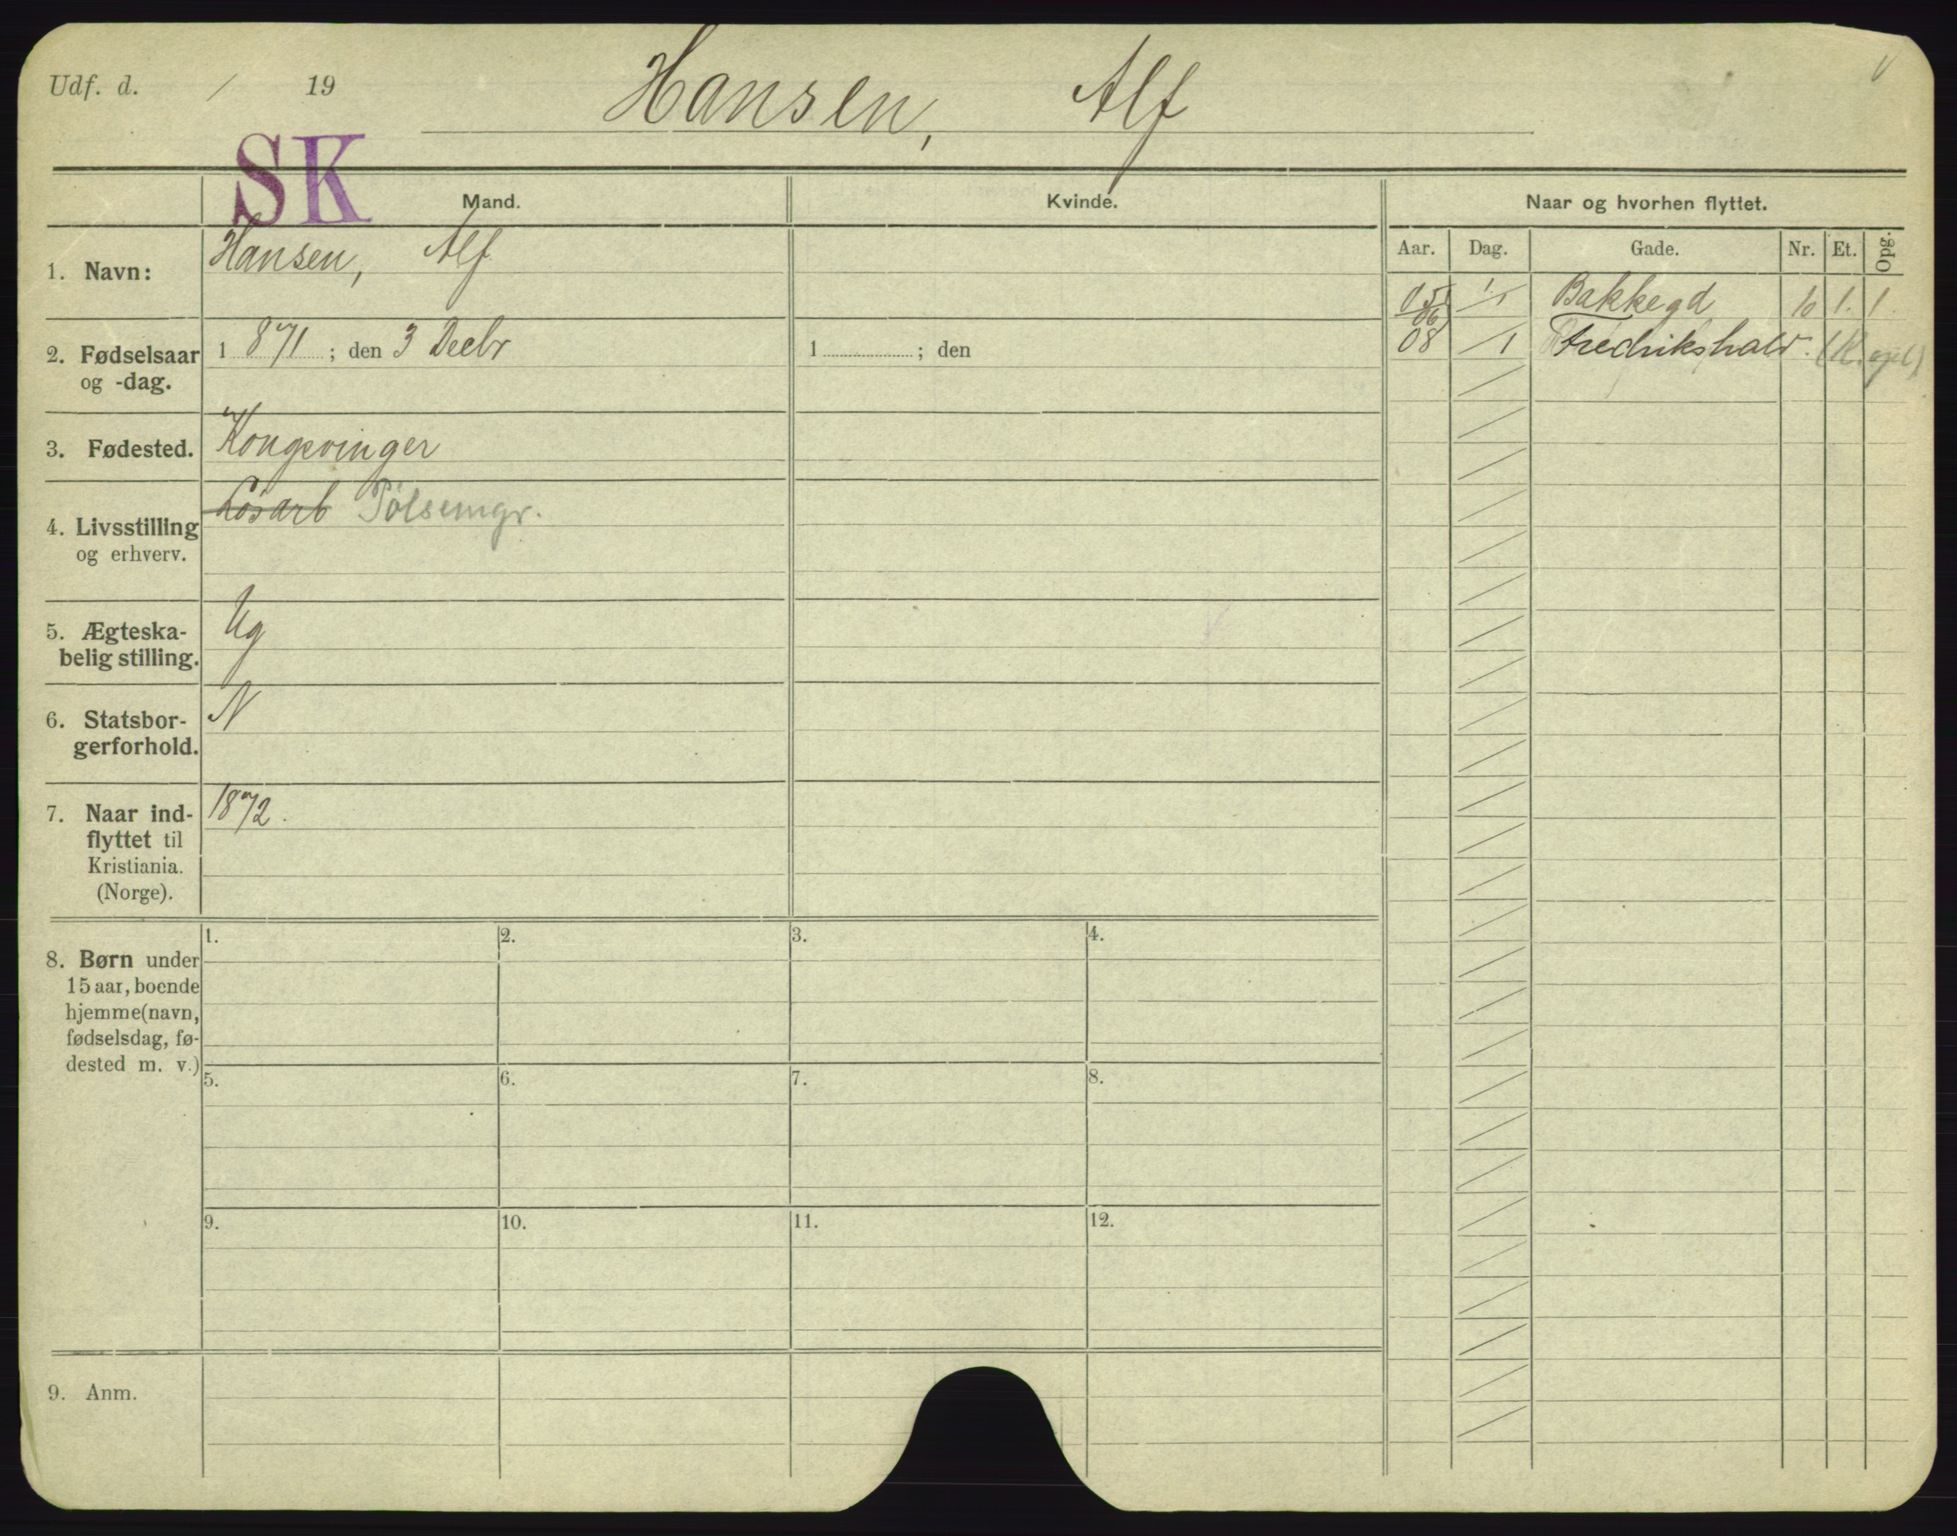 Udf. d. / 19
Hansen, Alf
SK
Mand.
Kvinde.
Naar og hvorhen flyttet.
Aar. Dag. Gade. Nr. Et. Opg.
1. Navn:
Hansen, Alf
05/06 1/1 Bakkegd 10 1. 1.
08 /1 Fredrikshald.
2. Fødselsaar
og -dag.
1 871 ; den 3 Decbr
1 ; den
3. Fødested.
Kongsvinger
4. Livsstilling
og erhverv.
Løsarb Pølsemgr.
5. Ægteska-
belig stilling.
Ug
6. Statsbor-
gerforhold.
N
7. Naar ind-
flyttet til
Kristiania.
(Norge).
1872.
8. Børn under
15 aar, boende
hjemme (navn,
fødselsdag, fø-
dested m. v.)
1. 2. 3. 4.
5. 6. 7. 8.
9. 10. 11. 12.
9. Anm.